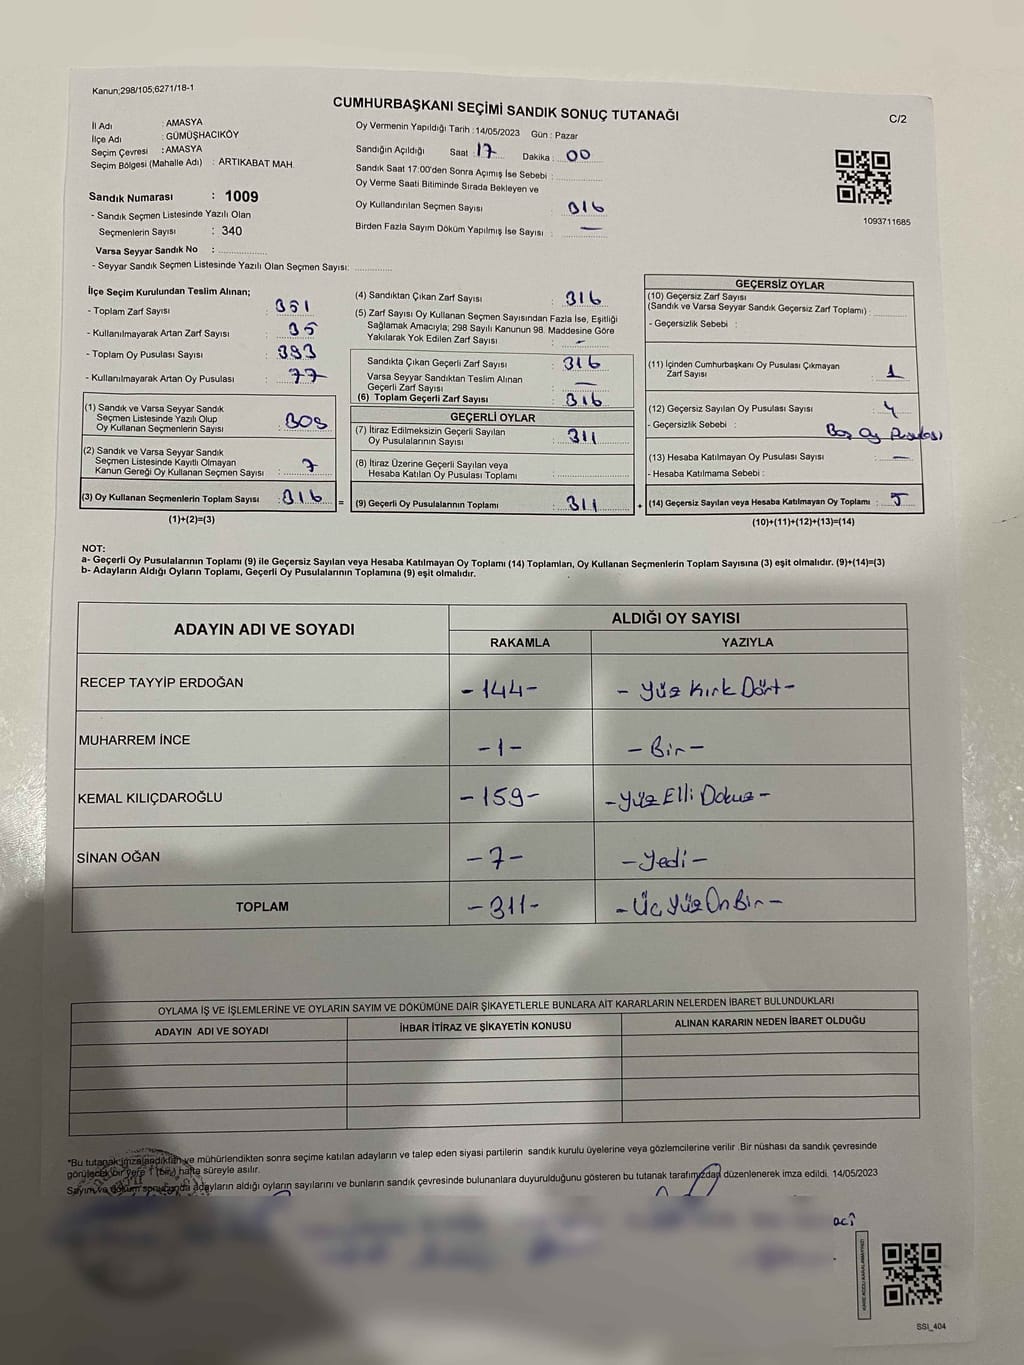 Kanun;298/105;6271/18-1
CUMHURBAŞKANI SEÇİMİ SANDIK SONUÇ TUTANAĞI
C/2
İl Adı : AMASYA
İlçe Adı : GÜMÜŞHACIKÖY
Seçim Çevresi : AMASYA
Seçim Bölgesi (Mahalle Adı) : ARTIKABAT MAH.
Sandık Numarası : 1009
- Sandık Seçmen Listesinde Yazılı Olan
Seçmenlerin Sayısı : 340
Varsa Seyyar Sandık No :
- Seyyar Sandık Seçmen Listesinde Yazılı Olan Seçmen Sayısı:
Oy Vermenin Yapıldığı Tarih : 14/05/2023 Gün : Pazar
Sandığın Açıldığı Saat : 17 Dakika : 00
Sandık Saat 17:00'den Sonra Açımış İse Sebebi :
Oy Verme Saati Bitiminde Sırada Bekleyen ve
Oy Kullandırılan Seçmen Sayısı : 316
Birden Fazla Sayım Döküm Yapılmış İse Sayısı : —
1093711685
İlçe Seçim Kurulundan Teslim Alınan;
- Toplam Zarf Sayısı : 351
- Kullanılmayarak Artan Zarf Sayısı : 35
- Toplam Oy Pusulası Sayısı : 393
- Kullanılmayarak Artan Oy Pusulası : 77
(1) Sandık ve Varsa Seyyar Sandık
Seçmen Listesinde Yazılı Olup
Oy Kullanan Seçmenlerin Sayısı : 309
(2) Sandık ve Varsa Seyyar Sandık
Seçmen Listesinde Kayıtlı Olmayan
Kanun Gereği Oy Kullanan Seçmen Sayısı : 7
(3) Oy Kullanan Seçmenlerin Toplam Sayısı : 316
(1)+(2)=(3)
=
(4) Sandıktan Çıkan Zarf Sayısı : 316
(5) Zarf Sayısı Oy Kullanan Seçmen Sayısından Fazla İse, Eşitliği
Sağlamak Amacıyla; 298 Sayılı Kanunun 98. Maddesine Göre
Yakılarak Yok Edilen Zarf Sayısı : -
Sandıkta Çıkan Geçerli Zarf Sayısı : 316
Varsa Seyyar Sandıktan Teslim Alınan
Geçerli Zarf Sayısı : —
(6) Toplam Geçerli Zarf Sayısı : 316
GEÇERLİ OYLAR
(7) İtiraz Edilmeksizin Geçerli Sayılan
Oy Pusulalarının Sayısı : 311
(8) İtiraz Üzerine Geçerli Sayılan veya
Hesaba Katılan Oy Pusulası Toplamı :
(9) Geçerli Oy Pusulalarının Toplamı : 311
+
GEÇERSİZ OYLAR
(10) Geçersiz Zarf Sayısı
(Sandık ve Varsa Seyyar Sandık Geçersiz Zarf Toplamı) :
- Geçersizlik Sebebi :
(11) İçinden Cumhurbaşkanı Oy Pusulası Çıkmayan
Zarf Sayısı : 1
(12) Geçersiz Sayılan Oy Pusulası Sayısı : 4
- Geçersizlik Sebebi : Boş Oy Pusulası
(13) Hesaba Katılmayan Oy Pusulası Sayısı : —
- Hesaba Katılmama Sebebi :
(14) Geçersiz Sayılan veya Hesaba Katılmayan Oy Toplamı : 5
(10)+(11)+(12)+(13)=(14)
NOT:
a- Geçerli Oy Pusulalarının Toplamı (9) ile Geçersiz Sayılan veya Hesaba Katılmayan Oy Toplamı (14) Toplamları, Oy Kullanan Seçmenlerin Toplam Sayısına (3) eşit olmalıdır. (9)+(14)=(3)
b- Adayların Aldığı Oyların Toplamı, Geçerli Oy Pusulalarının Toplamına (9) eşit olmalıdır.
ADAYIN ADI VE SOYADI
ALDIĞI OY SAYISI
RAKAMLA YAZIYLA
RECEP TAYYİP ERDOĞAN -144- - Yüz Kırk Dört -
MUHARREM İNCE -1- - Bir -
KEMAL KILIÇDAROĞLU -159- - Yüz Elli Dokuz -
SİNAN OĞAN -7- - Yedi -
TOPLAM -311- - Üç Yüz On Bir -
OYLAMA İŞ VE İŞLEMLERİNE VE OYLARIN SAYIM VE DÖKÜMÜNE DAİR ŞİKAYETLERLE BUNLARA AİT KARARLARIN NELERDEN İBARET BULUNDUKLARI
ADAYIN ADI VE SOYADI İHBAR İTİRAZ VE ŞİKAYETİN KONUSU ALINAN KARARIN NEDEN İBARET OLDUĞU
*Bu tutanak imzalandıktan ve mühürlendikten sonra seçime katılan adayların ve talep eden siyasi partilerin sandık kurulu üyelerine veya gözlemcilerine verilir .Bir nüshası da sandık çevresinde
görülecek bir yere 1 (bir) hafta süreyle asılır.
Sayım ve döküm sonucunda adayların aldığı oyların sayılarını ve bunların sandık çevresinde bulunanlara duyurulduğunu gösteren bu tutanak tarafımızdan düzenlenerek imza edildi. 14/05/2023
SSI_404